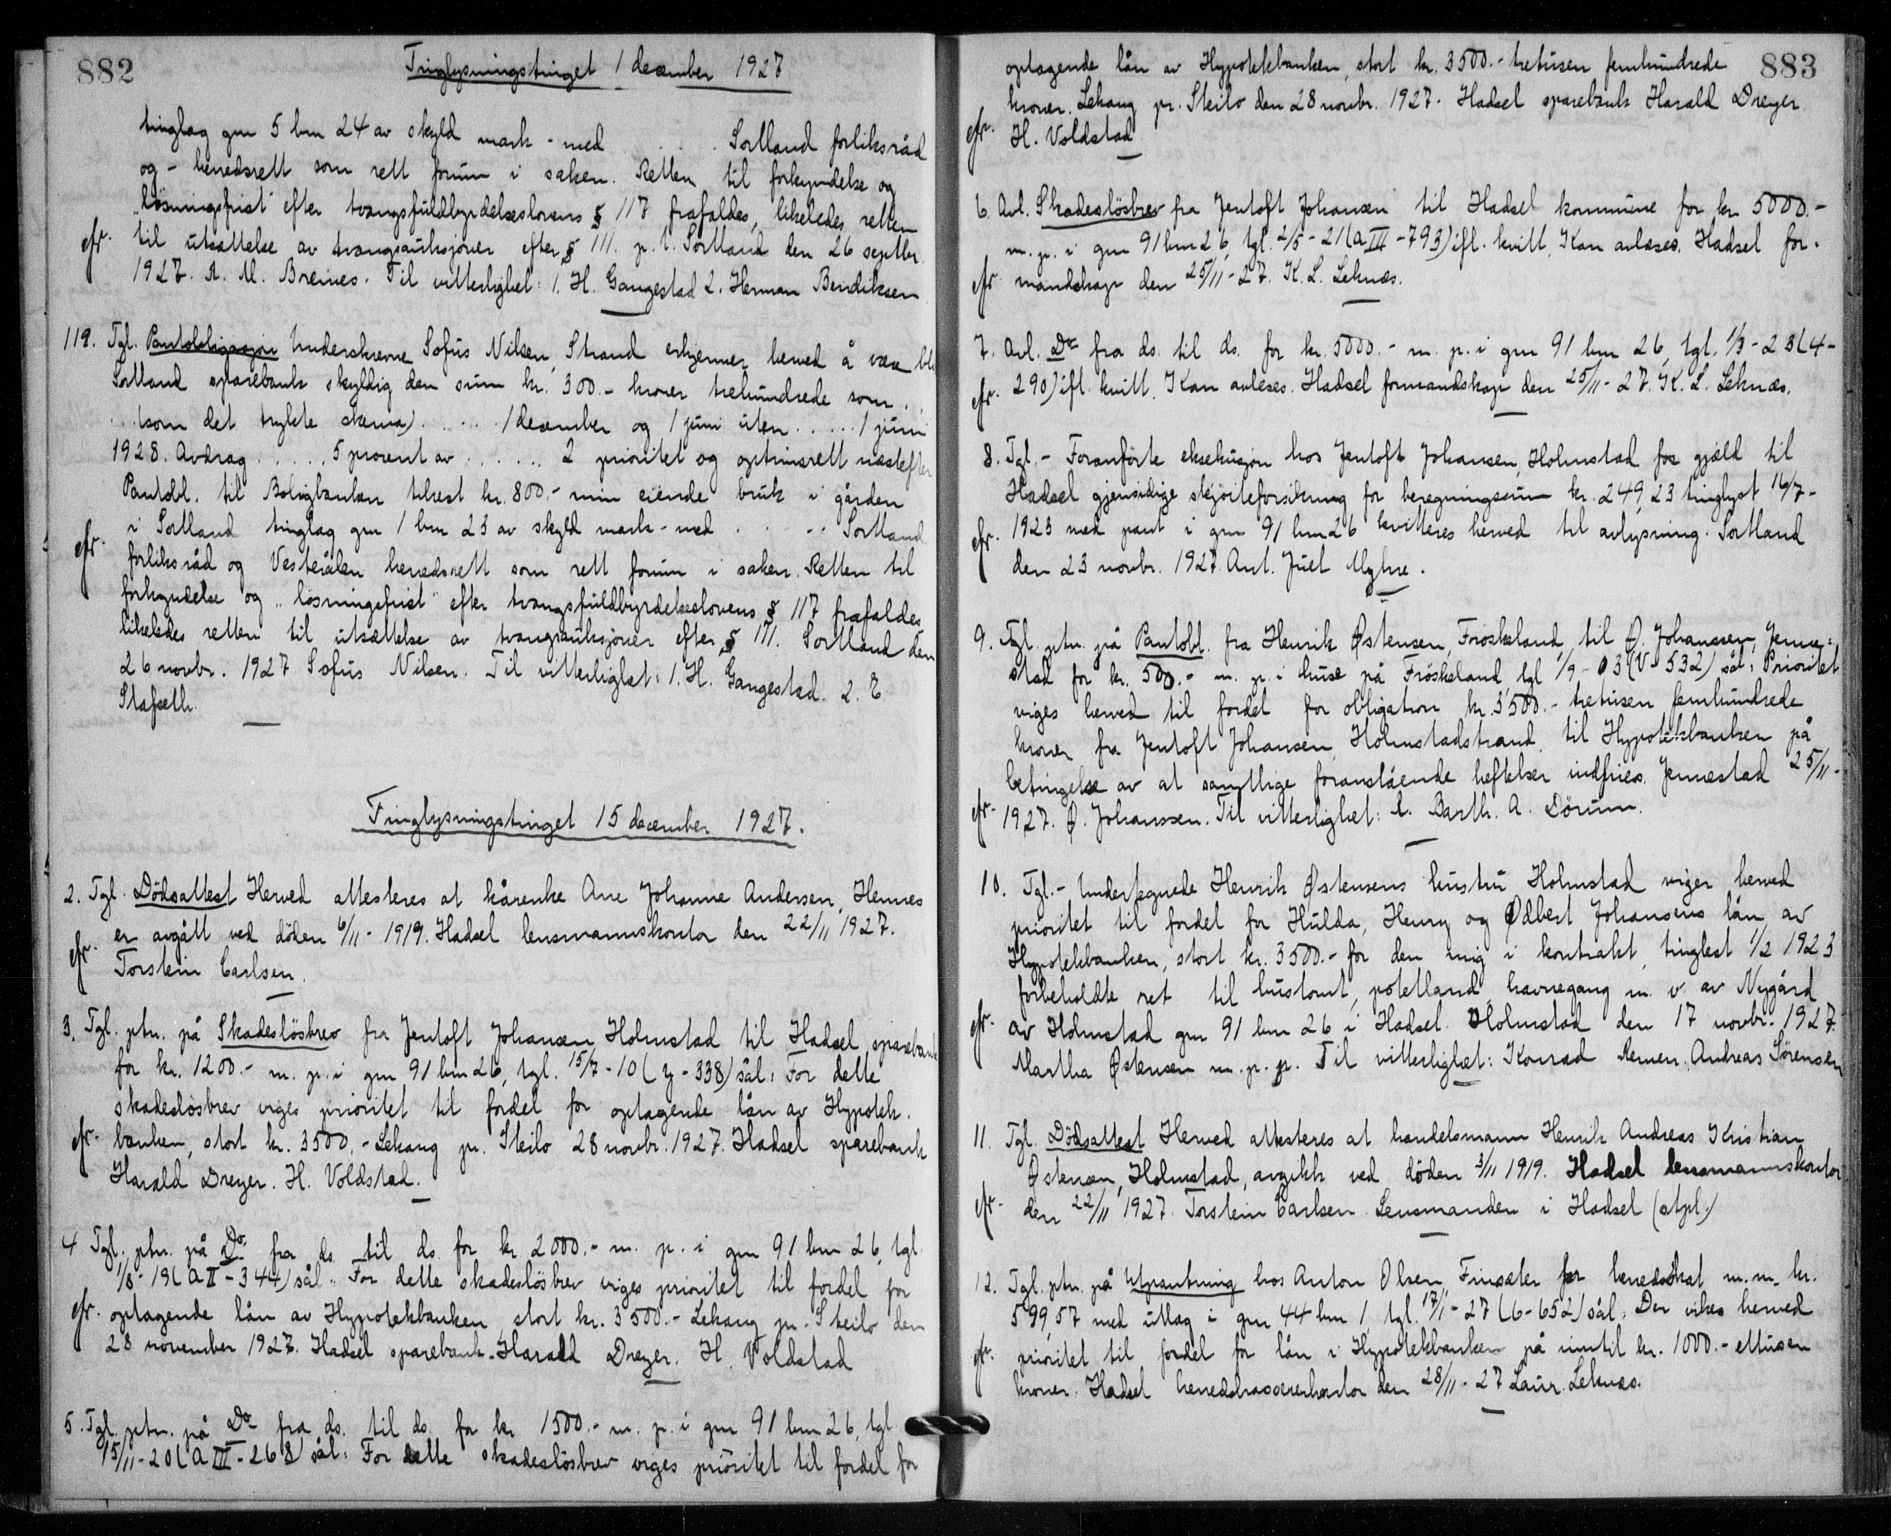 882
Tinglysningstinget 1 december 1927
tinglag gnr 5 bnr 24 av skyld mark - med . . . . Sortland forliksråd
og - herredsrett som rett forum i saken. Retten til forkyndelse og
"løsningsfrist" efter tvangsfuldbyrdelseslovens § 117 frafaldes, likeledes retten
til utsættelse av tvangsauksjoner efter § 111. p.t. Sortland den 26 septbr.
cfr.
1927. A. M. Breines. Til vitterlighet: 1. H. Gangestad 2. Herman Bendiksen
119. Tgl. Pantobligasjon Underskrevne Sofus Nilsen, Strand erkjenner herved å være bl
Sortland sparebank skyldig den sum kr. 300.- kroner trehundrede som . .
. . (som det trykte skema) . . . . . 1 december og 1 juni uten . . . . . 1 juni
1928. Avdrag . . . . . 5 prosent av . . . . . . 2 prioritet og optrinsrett næstefter
Pantobl. til Boligbanken tilrest kr. 800.- min eiende bruk i gården
i Sortland tinglag gnr 1 bnr 23 av skyld mark - med . . . . . Sortland
cfr.
forliksråd og Vesterålen herredsrett som rett forum i saken. Retten til
forkyndelse og "løsningsfrist" efter tvangsfuldbyrdelseslovens § 117 frafaldes
likeledes retten til utsættelse av tvangsauksjoner efter § 111. Sortland den
26 novbr. 1927. Sofus Nilsen. Til vitterlighet: 1. H. Gangestad. 2. E
Stafseth.
Tinglysningstinget 15 december 1927.
2. Tgl. Dødsattest Herved attesteres at kårenke Ane Johanne Andersen, Hennes
er avgått ved døden 6/11 - 1919. Hadsel lensmannskontor den 22/11 1927.
cfr.
Torstein Carlsen.
3. Tgl. ptn. på Skadesløsbrev fra Jentoft Johansen Holmstad til Hadsel sparebank
for kr. 1200.- m. p. i gnr 91 bnr 26, tgl. 15/7 - 10 (y - 338) sål: For dette
skadesløsbrev viges prioritet til fordel for optagende lån av Hypotek-
cfr. banken, stort kr. 3500.- Lekang pr. Steilo 28 novbr. 1927. Hadsel sparebank
Harald Dreyer. H. Voldstad.
4 Tgl. ptn. på Do. fra ds. til ds. for kr. 2000.- m. p. i gnr 91 bnr 26, tgl.
1/8 - 19 (A II - 344) sål: For dette skadesløsbrev viges prioritet til fordel for
cfr. optagende lån av Hypotekbanken, stort kr. 3500.- Lekang pr. Steilo den
28 november 1927. Hadsel sparebank. Harald Dreyer. H. Voldstad
5. Tgl. ptn. på Do fra ds. til ds. for kr 1500.- m. p. i gnr 91 bnr 26, tgl.
15/11 - 20 (A III - 268) sål: For dette skadesløsbrev viges prioritet til fordel for
883
optagende lån av Hypotekbanken, stort kr. 3500.- tretusen femhundrede
kroner. Lekang pr. Steilo den 28 novbr. 1927. Hadsel sparebank Harald Dreyer.
cfr. H. Voldstad
6. Avl. Skadesløsbrev fra Jentoft Johansen til Hadsel kommune for kr 5000.-
m. p. i gnr 91 bnr 26, tgl. 2/5 - 21 (A III - 793) ifl. kvitt. Kan avlæses. Hadsel for-
cfr mandskap den 25/11 - 27. K. L. Leknæs.
7. Avl. Do fra ds. til ds. for kr. 5000.- m. p. i gnr 91 bnr 26, tgl. 1/3 - 23 (4 -
cfr. 290) ifl. kvitt. Kan avleses. Hadsel formandskap den 25/11 - 27. K. L. Leknæs.
8. Tgl. - Foranførte eksekusjon hos Jentoft Johansen, Holmstad for gjæld til
Hadsel gjensidige skjøiteforsikring for beregningssum kr. 249,23 tinglyst 16/7 -
cfr. 1923 med pant i gnr 91 bnr 26 kvitteres herved til avlysning. Sortland
den 23 novbr. 1927. Ant. Juel Myhre.
9. Tgl. ptn. på Pantobl. fra Henrik Østensen, Frøskeland, til Ø. Johanssen, Jenne-
stad for kr. 500.- m. p. i huse på Frøskeland, tgl 1/9 - 03 (V - 532) sål: Prioritet
viges herved til fordel for obligation kr. 3500.- tretusen femhundrede
kroner fra Jentoft Johansen, Holmstadstrand, til Hypotekbanken på
betingelse av at samtlige foranstående heftelser indfries. Jennestad 25/11 -
cfr. 1927. Ø. Johanssen. Til vitterlighet: R. Barth. A. Dørum.
10. Tgl. - Undertegnede Henrik Østensens hustru Holmstad viger herved
prioritet til fordel for Hulda, Henry og Ødbert Johansens lån av
Hypotekbanken, stort kr. 3500.- for den mig i kontrakt, tinglest 1/2 1923
forbeholdte ret til hustomt, potetland, havnegang m. v. av Nygård
cfr. av Holmstad gnr 91 bnr 26 i Hadsel. Holmstad den 17 novbr. 1927.
Martha Østensen m. p. p. Til vitterlighet: Konrad Andreas Sørensen
11. Tgl. Dødsattest Herved attesteres at handelsmann Henrik Andreas Kristian
Østensen, Holmstad, avgikk ved døden 3/11 1919. Hadsel lensmannskontor
cfr. den 22/11 1927. Torstein Carlsen Lensmanden i Hadsel (stpl.)
12. Tgl. ptn. på Utpantning hos Anton Olsen, Finsæter for herredsskat m. m. kr.
599,57 med utlag i gnr 44 bnr 1 tgl. 17/1 - 27 (6 - 652) sål: Der vikes herved
cfr. prioritet til fordel for lån i Hypotekbanken på inntil kr. 1000.- ettusen
kroner. Hadsel herredskassererkontor den 28/11 - 27 Laur. Leknæs.